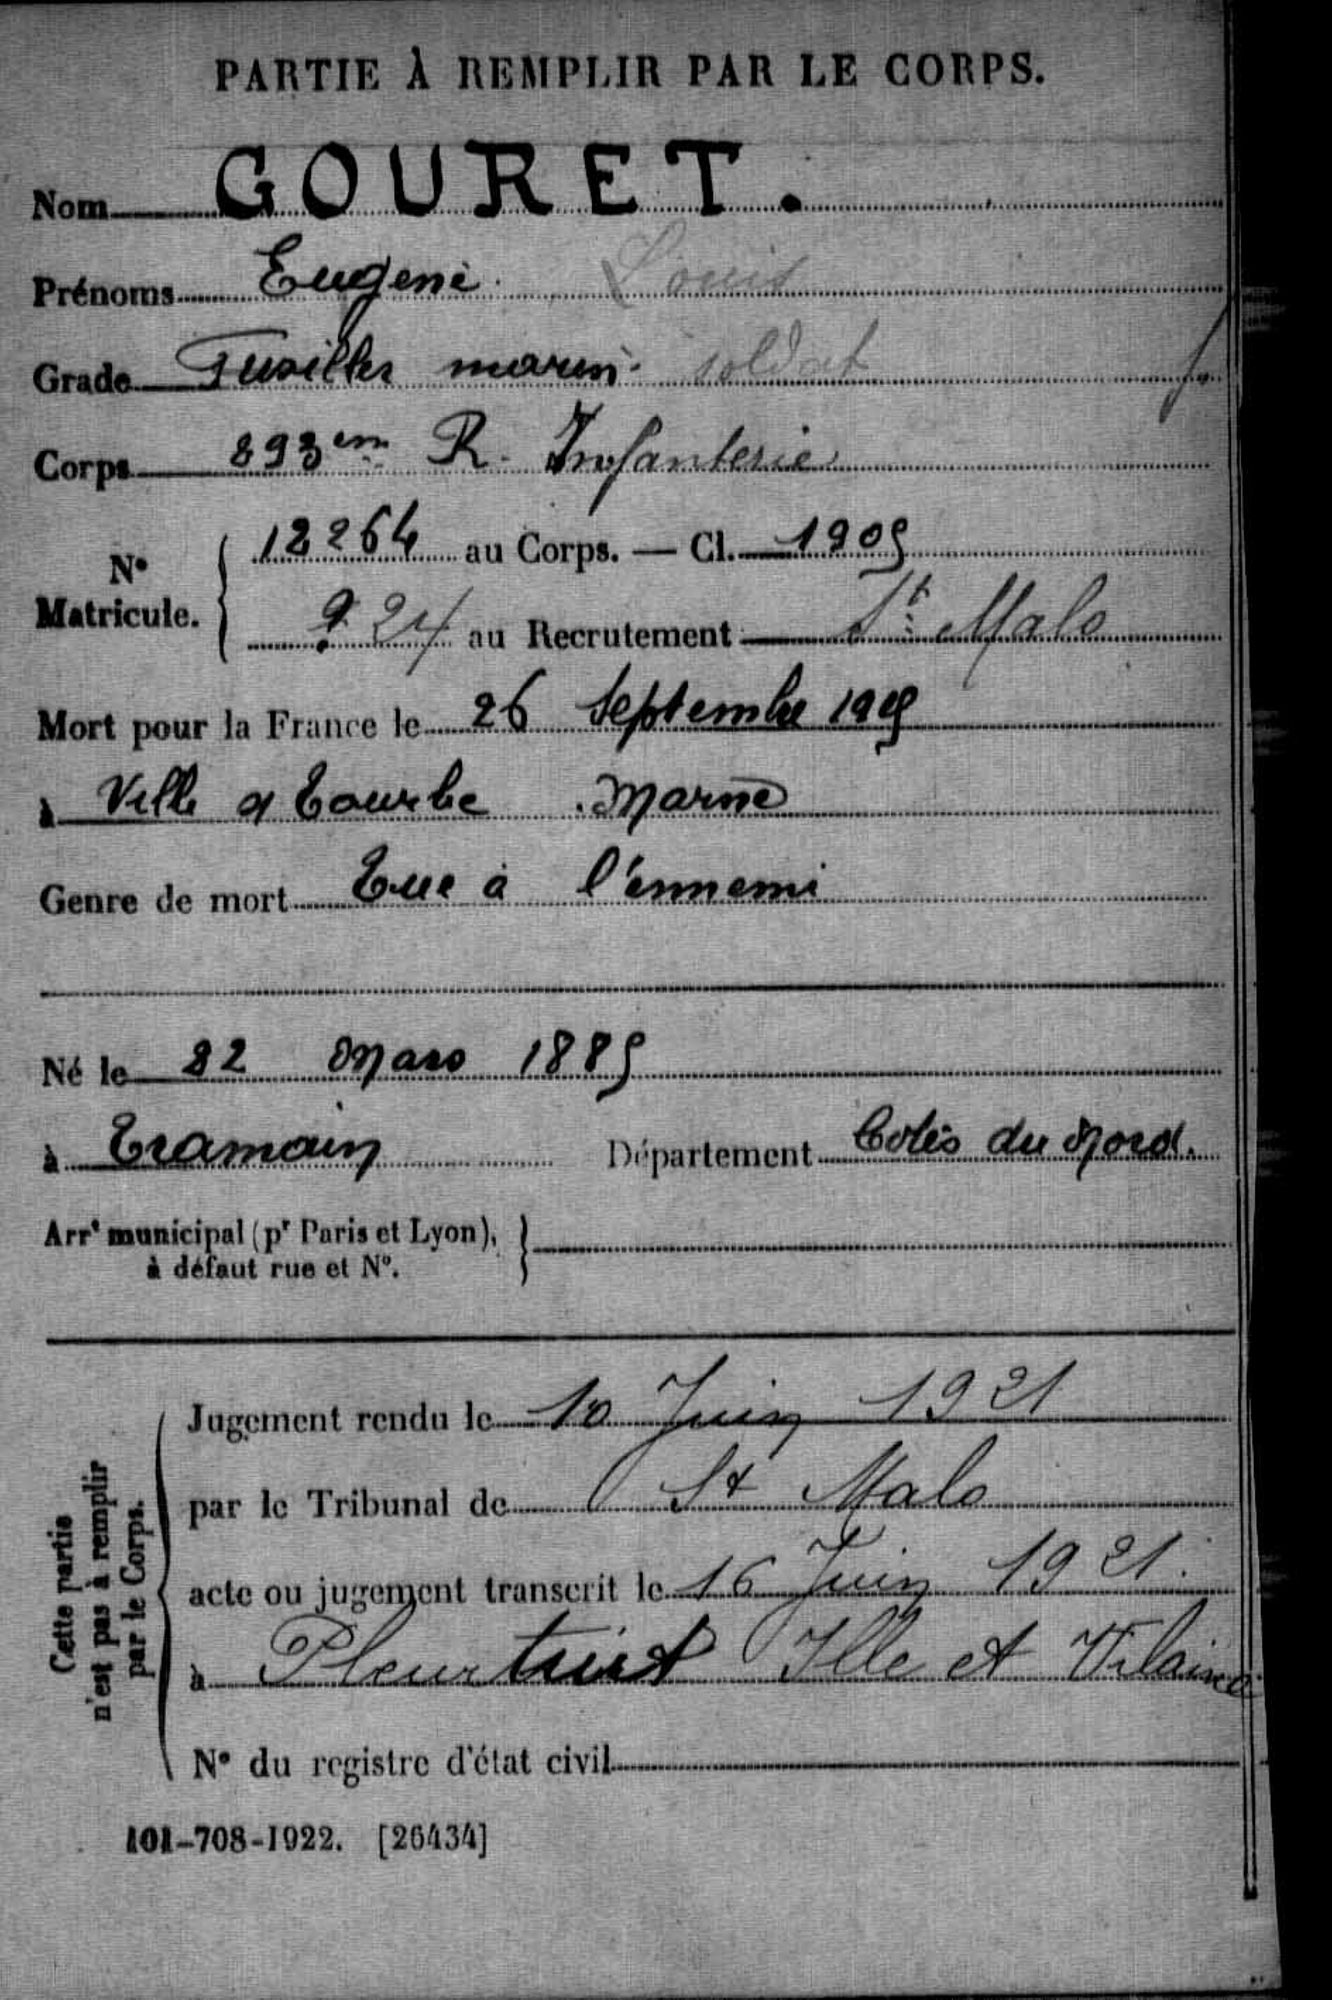 PARTIE À REMPLIR PAR LE CORPS.
Nom GOURET.
Prénoms Eugene Louis
Grade Fusilier marin soldat
Corps 293em R. Infanterie
No Matricule. 12264 au Corps. — Cl. 1905
924 au Recrutement St Malo
Mort pour la France le 26 Septembre 1915
à Ville s Tourbe Marne
Genre de mort Tué à l'ennemi
Né le 22 Mars 1885
à Tramain Département Cotes du Nord.
Arrt municipal (pr Paris et Lyon),
à défaut rue et No.
Cette partie
n'est pas à remplir
par le Corps.
Jugement rendu le 10 Juin 1921
par le Tribunal de St Malo
acte ou jugement transcrit le 16 Juin 1921.
à Pleurtuit Ille et Vilaine
No du registre d'état civil
101-708-1922. [26434]